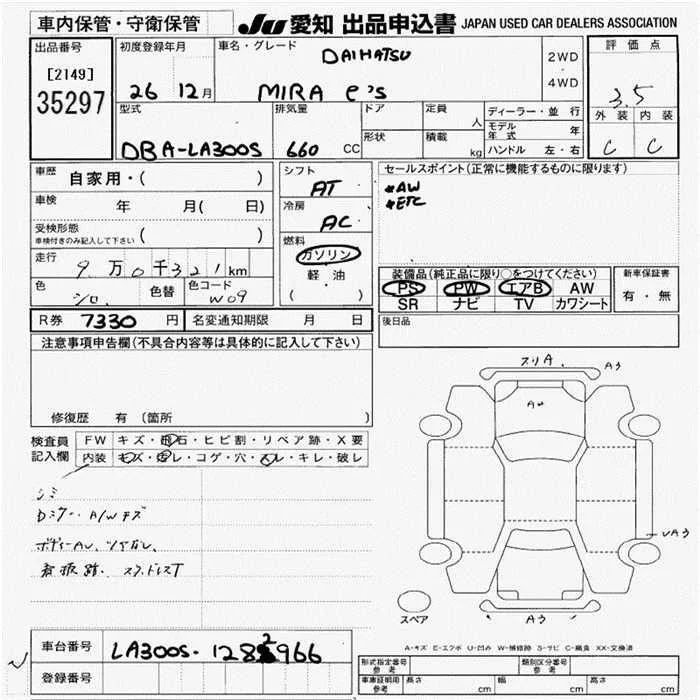 車内保管・守衛保管
JU 愛知 出品申込書 JAPAN USED CAR DEALERS ASSOCIATION
出品番号
[2149]
35297
初度登録年月
26 12月
車名・グレード
DAIHATSU
MIRA e's
2WD
・
4WD
評価点
3.5
外装 内装
C C
型式
DBA-LA300S
排気量
660 CC
ドア
形状
定員
人
積載
kg
ディーラー・並行
モデル年式 年
ハンドル 左・右
車歴
自家用・( )
車検
年 月( 日)
受検形態
車検付きのみ記入して下さい ( )
走行
9万0千321km
色
シロ
色替
色コード
W09
シフト
AT
冷房
AC
燃料
ガソリン
軽油
( )
セールスポイント(正常に機能するものに限ります)
*AW
*ETC
装備品(純正品に限り○をつけてください)
PS PW エアB AW
SR ナビ TV カワシート
新車保証書
有・無
R券 7330 円
名変通知期限 月 日
後日品
注意事項申告欄(不具合内容等は具体的に記入して下さい)
修復歴 有 (箇所 )
検査員
記入欄
FW キズ・飛石・ヒビ割・リペア跡・X要
内装 キズ・汚レ・コゲ・穴・スレ・キレ・破レ
シミ
Dミラー・A/Wキズ
スリA
Aう
A
Aう
Aう
スペア
A-キズ E-エクボ U-凹み W-補修跡 S-サビ C-腐食 XX-交換済
車台番号
LA300S-1282966
登録番号
形式指定番号
参考
類別区分番号
参考
車庫証明用
参考
長さ cm
幅 cm
高さ cm